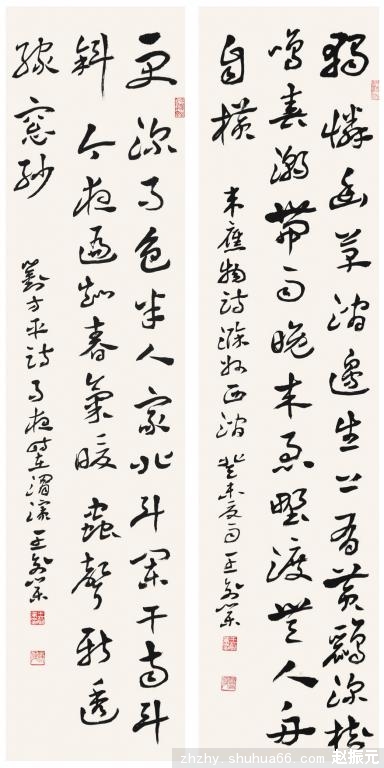 獨憐幽草澗邊生上有黃鸝深樹
鳴春潮帶雨晚來急野渡無人舟
自橫
韋應物詩滁州西澗 癸未夏
更深月色半人家北斗闌干南斗
斜今夜偏知春氣暖蟲聲新透
綠窗紗
劉方平詩月夜
zhzhy.shuhua66.com 赵振元